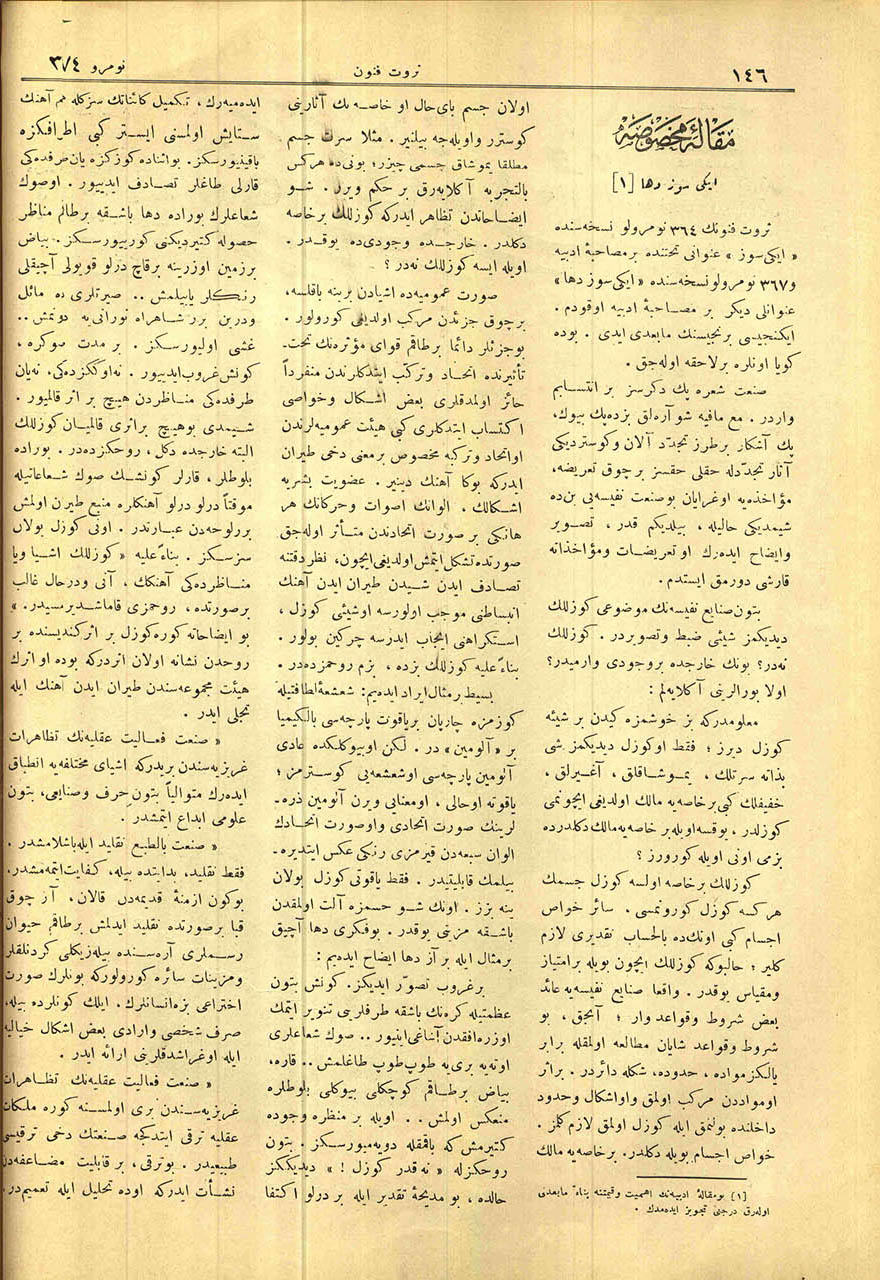 ١٤٦
ثروت فنون
نومرو ٣٧٤
مقالۀ مخصوصه
ایکی سوز دها [١]
ثروت فنونك ٣٦٤ نومرولو نسخه‌سنده
« ایکی سوز » عنوانی تحتنده بر مصاحبۀ ادبیه
و٣٦٧ نومرولو نسخه‌سنده «ایکی سوز دها»
عنوانلی دیکر بر مصاحبۀ ادبیه اوقودم .
ایکنجیسی برنجیسنك مابعدی ایدی . بوده
کویا اونلره بر لاحقه اوله‌جق .
صنعت شعره پك دکرسز بر انتسابم
واردر . مع مافیه شو آره‌لق بزده‌پك بیوك،
پك آشکار بر طرز تجدّد آلان وکوستردیکی
آثار تجدّدله حقلی حقسز بر چوق تعریضه،
مؤاخذه‌یه اوغرایان بو صنعت نفیسه‌یی بن‌ده
شیمدیکی حالیله، بیلدیکم قدر، تصویر
وایضاح ایده‌رك او تعریضات ومؤاخذاته
قارشی دورمق ایستدم .
بتون صنایع نفیسه‌نك موضوعی کوزللك
دیدیکمز شیئی ضبط وتصویردر . کوزللك
نه‌در؟ بونك خارجده بر وجودی وارمیدر؟
اولا بورالرینی آکلایه‌لم :
معلومدرکه بز خوشمزه کیدن بر شیئه
کوزل دیرز ؛ فقط اوکوزل دیدیکمز شی
بذاته سرتلك ، یوموشاقلق ، آغیرلق ،
خفیفلك کبی بر خاصه‌یه مالك اولدیغی ایچونمی
کوزلدر، یوقسه اویله بر خاصه‌یه مالك دکلدرده
بزمی اونی اویله کورورز ؟
کوزللك بر خاصه اولسه کوزل جسمك
هرکسه کوزل کورونمسی ، سائر خواص
اجسام کبی اونك‌ده بالحساب تقدیری لازم
کلیر ؛ حالبوکه کوزللك ایچون بویله بر امتیاز
ومقیاس یوقدر . واقعا صنایع نفیسه‌یه عائد
بعض شروط وقواعد وار ؛ آنجق ، بو
شروط وقواعد شایان مطالعه اولمقله برابر
یالکز مواده ، حدوده، شکله دائردر . بر اثر
اوموادّدن مرکب اولمق واواشکال وحدود
داخلنده بولنمق ایله کوزل اولمق لازم کلمز .
خواص اجسام بویله دکلدر. بر خاصه‌یه مالك
[١] بو مقالۀ ادبیه‌نك اهمیت وقیمتنه بناءً مابعدی
اوله‌رق درجنی تجویز ایده‌مدك .
اولان جسم بای حال او خاصه‌نك آثارینی
کوسترر واویله‌جه بیلنیر . مثلا سرت جسم
مطلقا یموشاق جسمی چیزر؛ بونی‌ده هرکس
بالتجربه آکلایه‌رق بر حکم ویرر . شو
ایضاحاتدن تظاهر ایدرکه کوزللك بر خاصه
دکلدر . خارجده وجودی‌ده یوقدر .
اویله ایسه کوزللك نه‌در ؟
صورت عمومیه‌ده اشیادن برینه باقلسه،
بر چوق جزئدن مرکب اولدیغی کورولور .
بوجزئلر دائما بر طاقم قوای مؤثره‌نك تحت‌
تأثیرنده اتحاد وترکّب ایتدکلرندن منفرداً
حائز اولمدقلری بعض اشکال وخواصی
اکتساب ایتدکلری کبی هیئت عمومیه‌لرندن
اواتحاد وترکبه مخصوص بر معنی دخی طیران
ایدرکه بوکا آهنك دینیر . عضویت بشریه
اشکالك . الوانك اصوات وحرکاتك هر
هانکی بر صورت اتحادندن متأثر اوله‌جق
صورتده تشکل ایتمش اولدیغی ایچون، نظر دقتنه
تصادف ایدن شیدن طیران ایدن آهنك
انبساطنی موجب اولورسه اوشیئی کوزل ،
استکراهنی ایجاب ایدرسه چرکین بولور .
بناءً علیه کوزللك بزده ، بزم روحمزده‌در .
بسیط بر مثال ایراد ایده‌یم: شعشعۀ لطافتیله
کوزمزه چارپان بر یاقوت پارچه‌سی بالکیمیا
بر « آلومین » در . لکن اوبیوکلکده عادی
آلومین پارچه‌سی اوشعشعه‌یی کوسترمز ؛
یاقوته اوحالی ، اومعنایی ویرن آلومین ذره‌-
لرینك صورت اتحادی واوصورت اتحادك
الوان سبعه‌دن قیرمزی رنکی عکس ایتدیره‌-
بیلمك قابلیتیدر . فقط یاقوتی کوزل بولان
ینه بزز . اونك شو حسمزه آلت اولمقدن
باشقه مزیتی یوقدر . بوفکری دها آچیق
بر مثال ایله بر آز دها ایضاح ایده‌یم :
بر غروب تصوّر ایدیکز. کونش بتون
عظمتیله کره‌نك باشقه طرفلرینی تنویر ایتمك
اوزره افقدن آشاغی اینیور . . صوك شعاعلری
اوته‌یه بری‌یه طوپ طوپ طاغلمش . . قاره،
بیاض بر طاقم کوچکلی بیوکلی بلوطلره
منعکس اولمش . . اویله بر منظره وجوده
کتیرمش که باقمقله دویه‌میورسکز . بتون
روحکزله « نه قدر کوزل ! » دیدیککز
حالده ، بو مدیحۀ تقدیر ایله بر درلو اکتفا
ایده‌میه‌رك ، تکمیل کائناتك سزکله هم آهنك
ستایش اولمسنی ایستر کبی اطرافکزه
باقینیورسکز. بواثناده کوزکزه یان طرفده‌کی
قارلی طاغلر تصادف ایدییور . اوصوك
شعاعلرك بوراده دها باشقه بر طالم مناظر
حصوله کتیردیکنی کورییورسکز.. بیاض
بر زمین اوزرینه بر قاچ درلو قویولی آچیقلی
رنکلر یاپیلمش . . صیرتلری ده مائل
ودرین بر شاهراه نورانی‌یه دونمش..
غشی اولیورسکز . بر مدت صوکره ،
کونش غروب ایدییور . نه‌اوکّکزده‌کی، نه‌یان
طرفده‌کی مناظردن هییچ بر اثر قالمیور .
شیمدی بوهییچ بر اثری قالمیان کوزللك
البته خارجده دکل ، روحکزده‌در . بوراده
بلوطلر، قارلر کونشك صوك شعاعاتیله
موقتاً درلو درلو آهنکلره منبع طیران اولمش
بررلوحه‌دن عبارتدر . اونی کوزل بولان
سزسکز . بناءً علیه « کوزللك اشیا ویا
مناظرده‌کی آهنکك ، آنی ودرحال غالب
بر صورتده، روحمزی قاماشدیرمسیدر. »
بو ایضاحاته کوره کوزل بر اثر کندیسنده بر
روحدن نشانه اولان اثردرکه بوده او اثرك
هیئت مجموعه‌سندن طیران ایدن آهنك ایله
تجلی ایدر .
« صنعت فعالیت عقلیه‌نك تظاهرات
غریزیه‌سندن بریدرکه اشیای مختلفه‌یه انطباق
ایده‌رك متوالیاً بتون حرف وصنایعی، بتون
علومی ابداع ایتمشدر .
« صنعت بالطبع تقلید ایله باشلامشدر .
فقط تقلید، بدایتده بیله، کفایت ایتمه‌مشدر.
بوکون ازمنۀ قدیمه‌دن قالان ، آز چوق
قبا بر صورتده تقلید ایدلمش بر طاقم حیوان
رسملری آره‌سنده بیله‌زیکلی کردنلقلر
ومزینات سائره کورولورکه بونلرك صورت
اختراعی بزه انسانلرك، ایلك کونلرده بیله،
صرف شخصی وارادی بعض اشکال خیالیه
ایله اوغراشدقلرینی ارائه ایدر .
« صنعت فعالیت عقلیه‌نك تظاهرات
غریزیه‌سندن بری اولمسنه کوره ملکات
عقلیه ترقی ایتدکجه صنعتك دخی ترقیسی
طبیعیدر . بوترقی، بر قابلیت مضاعفه‌دن
نشأت ایدرکه اوده تحلیل ایله تعمیم‌در.